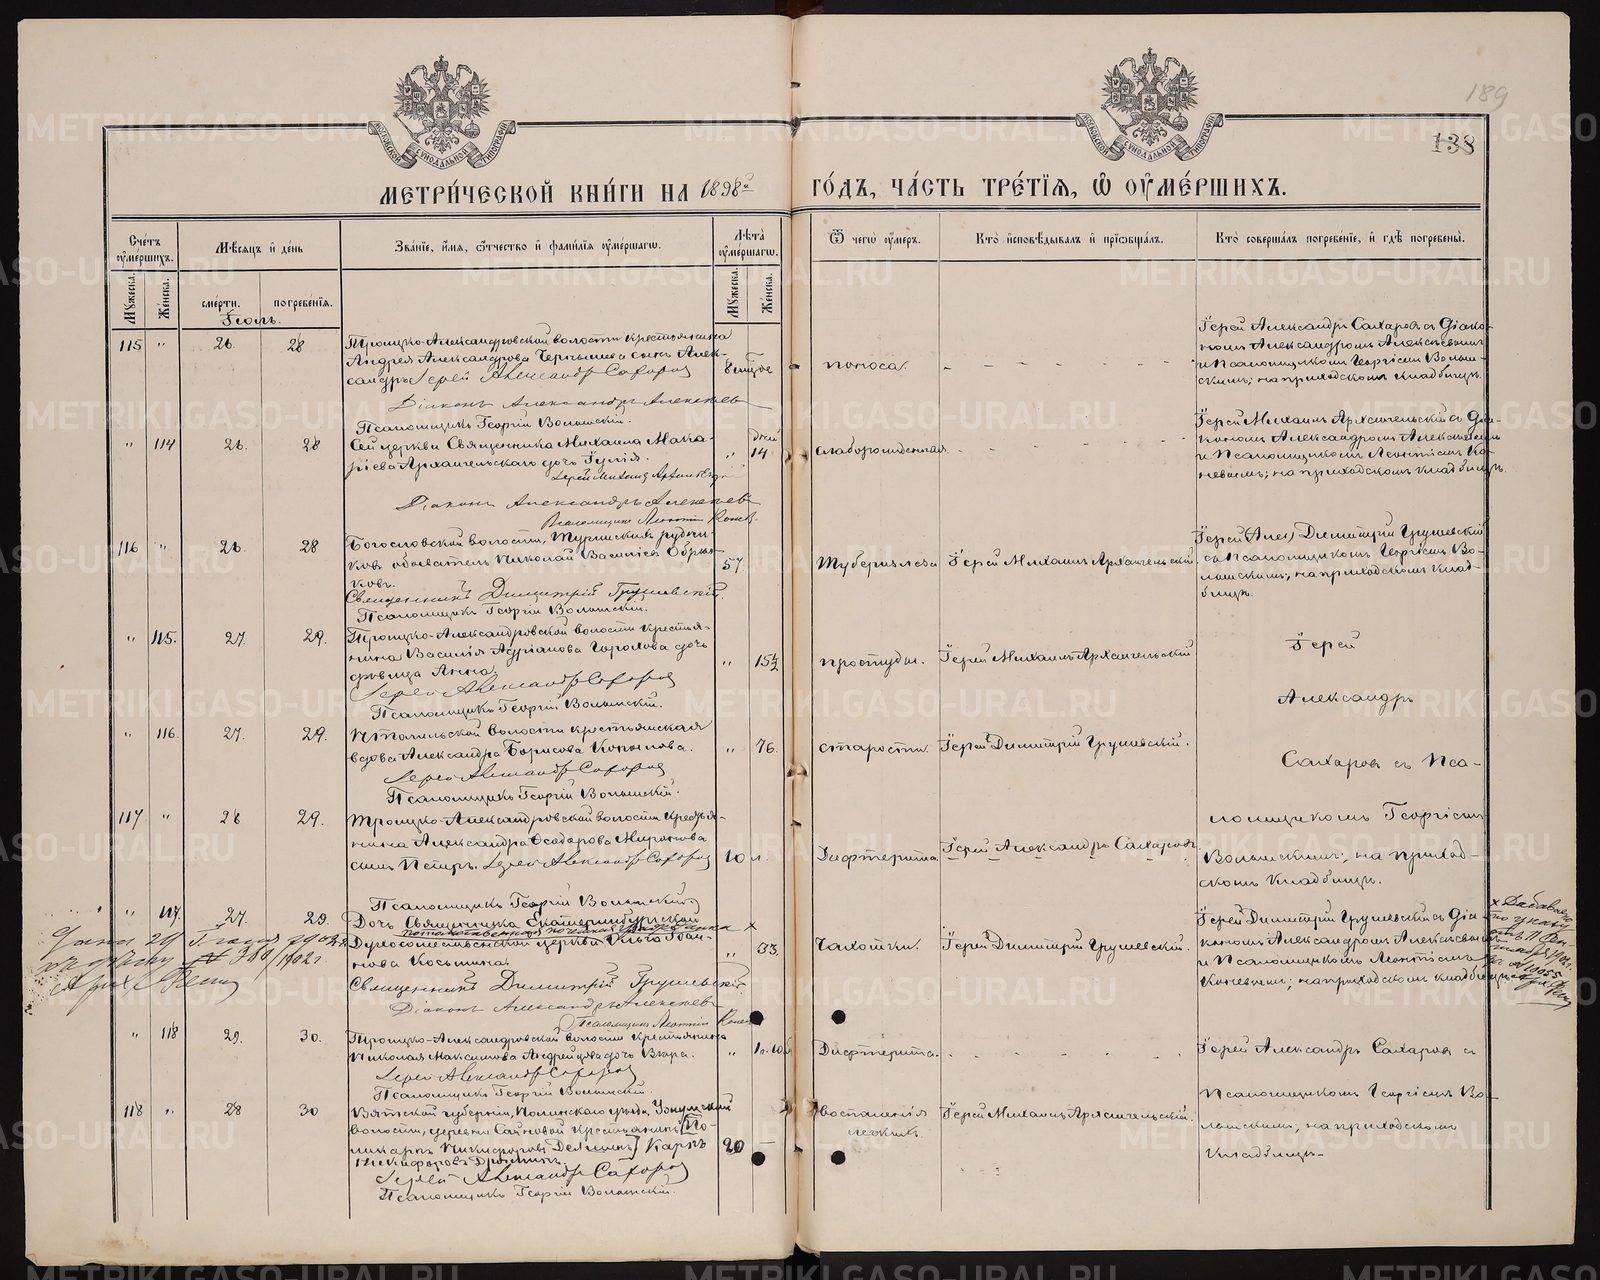 189
138
МОСКОВСКОЙ СѴНОДАЛЬНОЙ ТИПОГРАФІИ
МОСКОВСКОЙ СѴНОДАЛЬНОЙ ТИПОГРАФІИ
МЕТРИ́ЧЕСКОЙ КНИ́ГИ НА 1898й ГО́ДЪ, ЧА́СТЬ ТРЕ́ТІѦ, Ѡ ОУМЕ́РШИХЪ.
Сче́тъ оуме́ршихъ.
Мѣ́сѧцъ и де́нь
Зва́нїе, и́мѧ, ѻ́тчество и фами́лїѧ оуме́ршагѡ.
Лѣ́та оуме́ршагѡ.
Ѿ чегѡ̀ оу́меръ.
Кто̀ исповѣ́дывалъ и прїѡбща́лъ.
Кто̀ соверша́лъ погребе́нїе, и гдѣ̀ погребены̀.
Мꙋ́жеска.
Же́нска.
сме́рти.
погребе́нїѧ.
Мꙋ́жеска.
Же́нска.
Іюль.
115 " 26. 28
Троицко-Александровской волости крестьянина
Андрея Александрова Чернышева сынъ Алек-
сандръ Іерей Александръ Сахаровъ
Діаконъ Александръ Алексѣевъ
Псаломщикъ Георгій Волынскій.
поноса.
Іерей Александръ Сахаровъ съ Діако-
номъ Александромъ Алексѣевымъ
и Псаломщикомъ Георгіемъ Волын-
скимъ; на приходскомъ кладбищѣ.
" 114 26. 28
Сей церкви Священника Михаила Мака-
ріева Архангельскаго дочь Іулія.
Іерей Михаилъ Архангельскій
Діаконъ Александръ Алексѣевъ
Псаломщикъ Леонтій Коневъ.
" дней 14
слаборожденная
Іерей Михаилъ Архангельскій съ Діа-
кономъ Александромъ Алексѣевымъ
и Псаломщикомъ Леонтіемъ Ко-
невымъ; на приходскомъ кладбищѣ.
116 " 26. 28
Богословской волости, Турьинскихъ рудни-
ковъ обыватель Николай Василіевъ
ковъ.
Священникъ Димитрій Грушевскій
Псаломщикъ Георгій Волынскій.
57
Туберкулеза
Іерей Михаилъ Архангельскій
Іерей Димитрій Грушевскій
съ Псаломщикомъ Георгіемъ Во-
лынскимъ; на приходскомъ клад-
бищѣ.
" 115. 27. 29.
Троицко-Александровской волости крестья-
нина Василія Адріанова Горохова дочь
дѣвица Анна
Іерей Александръ Сахаровъ
Псаломщикъ Георгій Волынскій.
" 15½
простуды.
Іерей Михаилъ Архангельскій
Іерей
Александръ
Сахаровъ съ Пса-
ломщикомъ Георгіемъ
Волынскимъ; на приход-
скомъ кладбищѣ.
" 116. 27. 29.
волости крестьянская
вдова Александра Борисова Копылова.
Іерей Александръ Сахаровъ
Псаломщикъ Георгій Волынскій.
" 76.
старости.
Іерей Димитрій Грушевскій.
117 " 28 29.
Троицко-Александровской волости крестья-
нина Александра Ѳеодорова Миронова
сынъ Петръ. Іерей Александръ Сахаровъ
Псаломщикъ Георгій Волынскій
10 л.
Дифтерита
Іерей Александръ Сахаровъ
" 117. 27. 29.
Дочь Священника Екатеринбургской
Духосошественской церкви Ольга
нова Косьмина.
Священникъ Димитрій Грушевскій
Діаконъ Александръ Алексѣевъ
Псаломщикъ Леонтій Коневъ
" 33.
Чахотки.
Іерей Димитрій Грушевскій.
Іерей Димитрій Грушевскій съ Діа-
кономъ Александромъ Алексѣевымъ
и Псаломщикомъ Леонтіемъ
Коневымъ; на приходскомъ кладбищѣ
" 118 29. 30.
Троицко-Александровской волости крестьянина
Николая Максимова Андрейцова дочь Вѣра.
Іерей Александръ Сахаровъ
Псаломщикъ Георгій Волынскій
Дифтерита.
Іерей Александръ Сахаровъ съ
Псаломщикомъ Георгіемъ Во-
лынскимъ, на приходскомъ
кладбищѣ.
118 " 28 30
Вятской губерніи, Нолинскаго уѣзда,
волости, деревни крестьянинъ
Карпъ
Никифоровъ
Іерей Александръ Сахаровъ
Псаломщикъ Георгій Волынскій.
20 —
воспаленія
легкихъ.
Іерей Михаилъ Архангельскій.
METRIKI.GASO-URAL.RU